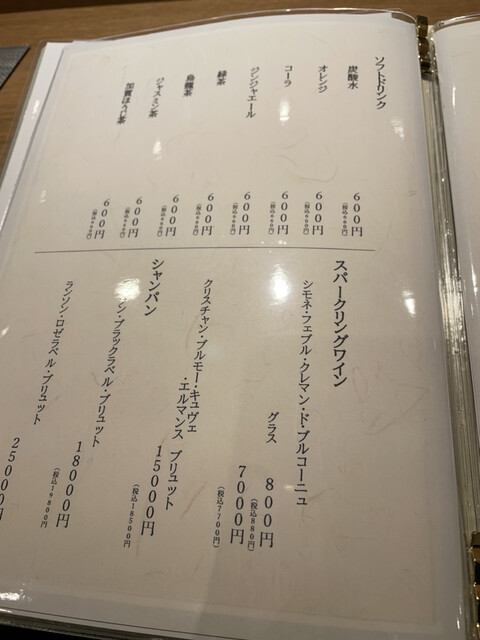 ソフトドリンク
炭酸水
600円
(税込660円)
オレンジ
600円
(税込660円)
コーラ
600円
(税込660円)
ジンジャエール
600円
(税込660円)
緑茶
600円
(税込660円)
烏龍茶
600円
(税込660円)
ジャスミン茶
600円
(税込660円)
加賀ほうじ茶
600円
(税込660円)
スパークリングワイン
シモネ・フェブル・クレマン・ド・ブルゴーニュ
グラス 800円
(税込880円)
7000円
(税込7700円)
クリスチャン・ブルモー・キュヴェ
・エルマンス ブリュット
15000円
(税込18500円)
シャンパン
ン・ブラックラベル・ブリュット
18000円
(税込19800円)
ランソン・ロゼラベル・ブリュット
25000円